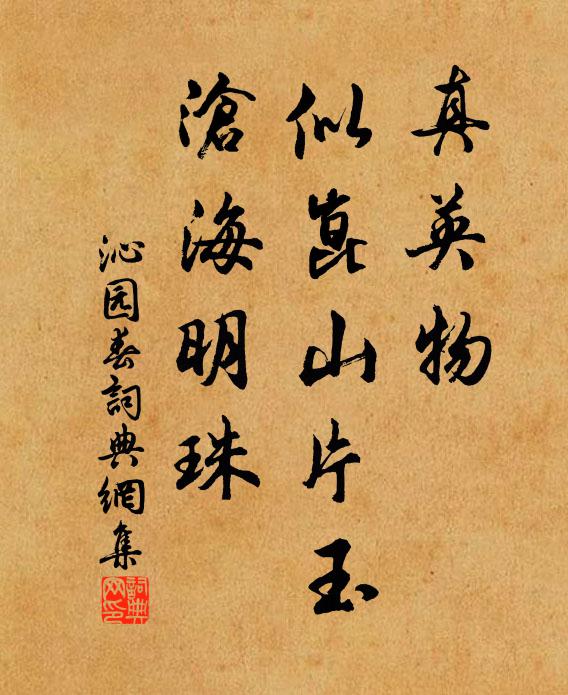 真英物
似崑山片玉
滄海明珠
沁园春詞典網集
詞典網印